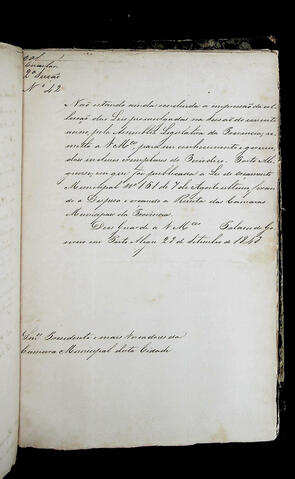 Circular
2ª Secção
Nº 42
Não estando ainda concluida a impressão da col-
lecção das Leis promulgadas na sessão do corrente
anno, pela Assemblea Legislativa da Provincia, re-
metto a VMces para seu conhecimento e governo
dois inclusos exemplares do Periodico Porto Ale-
grense, em que foi publicada a Lei do Orçamento
Municipal nº 151 de 7 de Agosto ultimo, fixan-
do a Despesa e orçando a Receita das Camaras
Municipaes da Provincia.
Deos Guarde a VMces Palacio do Go-
verno em Porto Alegre 22 de Setembro de 1848
Snres Presidente e mais Vereadores da
Camara Municipal desta Cidade